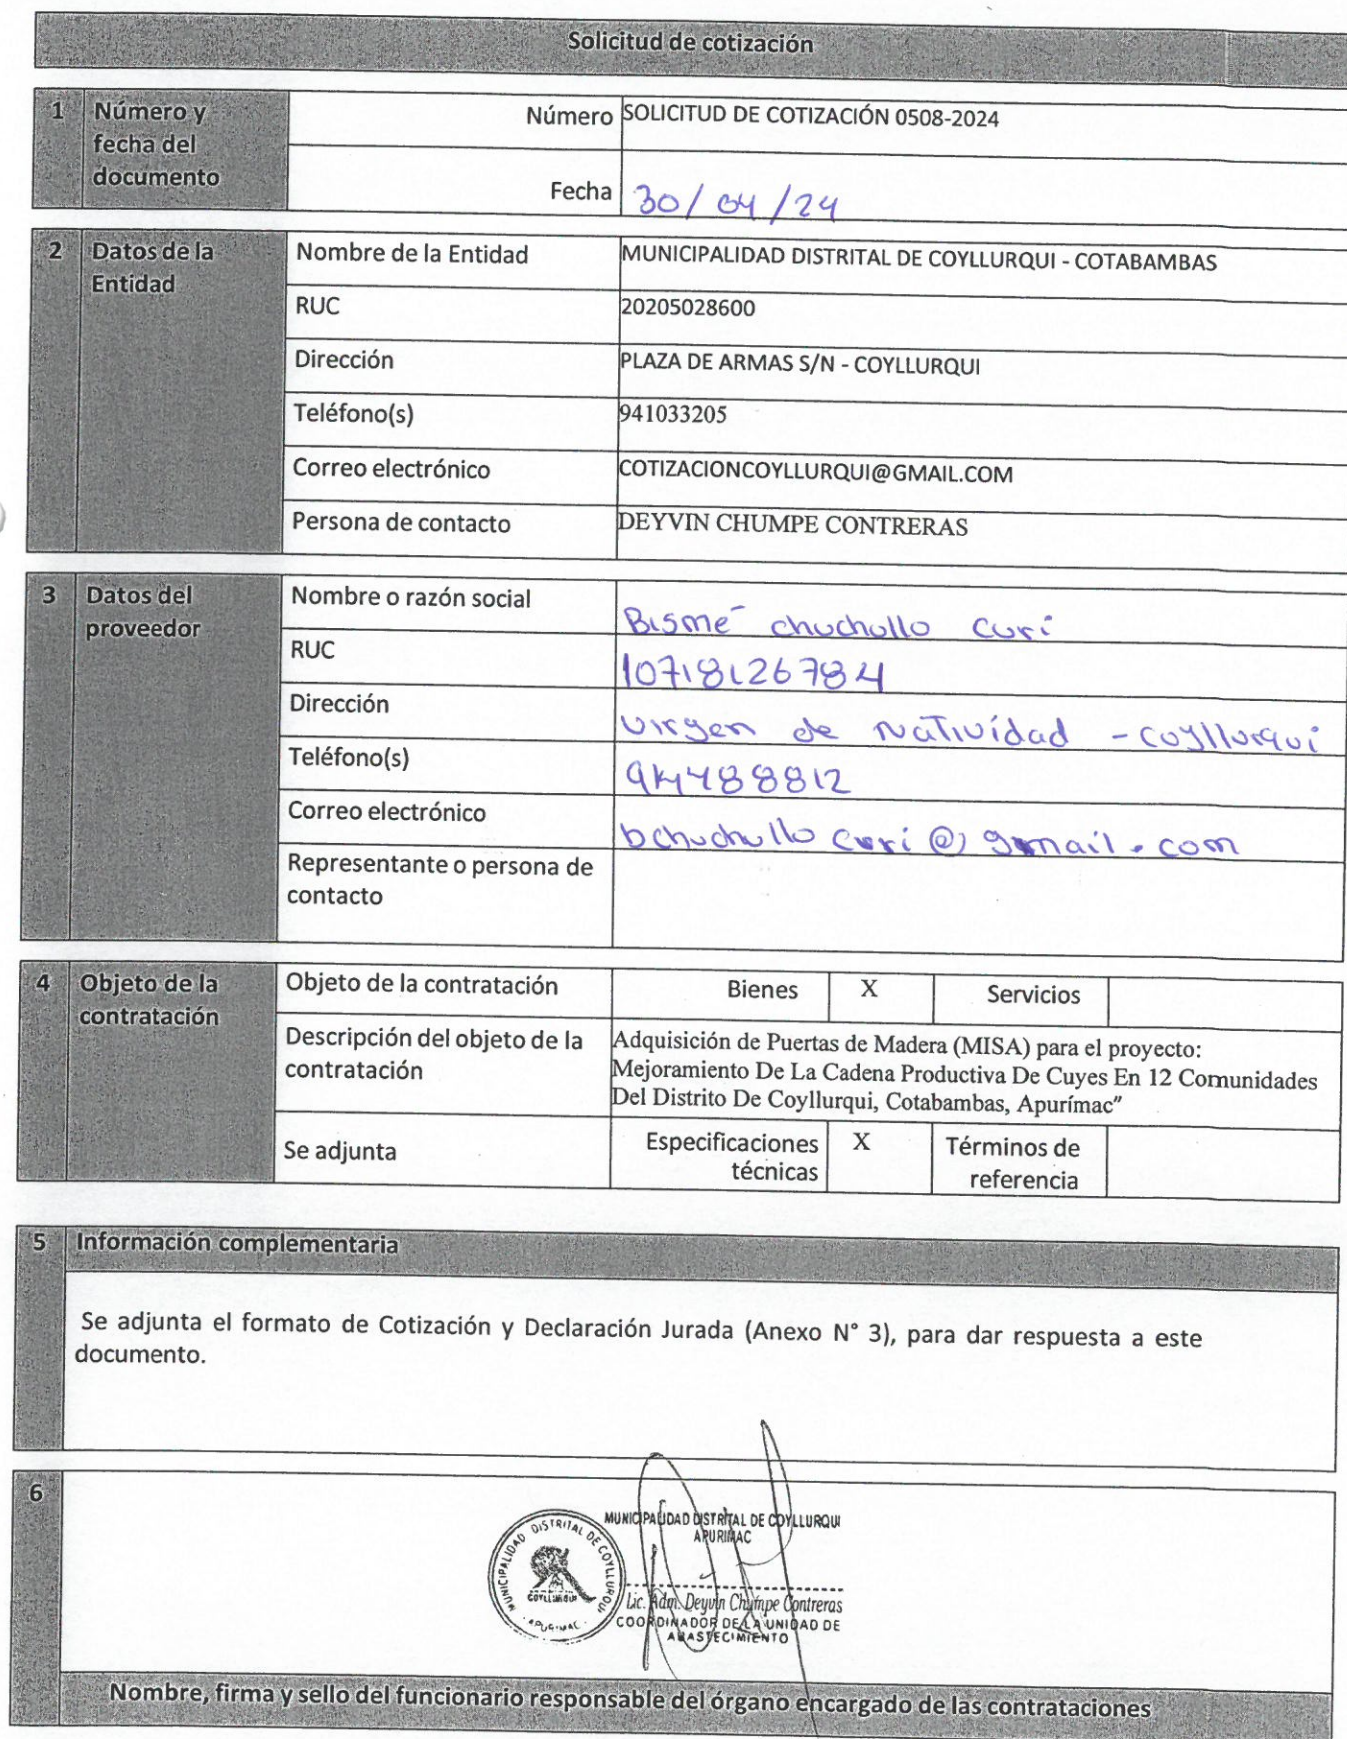 Solicitud de cotización
1 Número y fecha del documento
Número SOLICITUD DE COTIZACIÓN 0508-2024
Fecha 30/04/24
2 Datos de la Entidad
Nombre de la Entidad MUNICIPALIDAD DISTRITAL DE COYLLURQUI - COTABAMBAS
RUC 20205028600
Dirección PLAZA DE ARMAS S/N - COYLLURQUI
Teléfono(s) 941033205
Correo electrónico COTIZACIONCOYLLURQUI@GMAIL.COM
Persona de contacto DEYVIN CHUMPE CONTRERAS
3 Datos del proveedor
Nombre o razón social Bismé chuchullo curi
RUC 10718126784
Dirección virgen de Natividad - coyllurqui
Teléfono(s)
Correo electrónico bchuchullo curi@gmail.com
Representante o persona de
contacto
4 Objeto de la contratación
Objeto de la contratación Bienes X Servicios
Descripción del objeto de la
contratación
Adquisición de Puertas de Madera (MISA) para el proyecto:
Mejoramiento De La Cadena Productiva De Cuyes En 12 Comunidades
Del Distrito De Coyllurqui, Cotabambas, Apurímac"
Se adjunta Especificaciones técnicas X Términos de referencia
5 Información complementaria
Se adjunta el formato de Cotización y Declaración Jurada (Anexo N° 3), para dar respuesta a este
documento.
6
MUNICIPALIDAD DISTRITAL DE COYLLURQUI
APURIMAC
MUNICIPALIDAD DISTRITAL DE COYLLURQUI
COYLLURQUI
- APURIMAC -
Lic. Adm. Deyvin Chumpe Contreras
COORDINADOR DE LA UNIDAD DE
ABASTECIMIENTO
Nombre, firma y sello del funcionario responsable del órgano encargado de las contrataciones